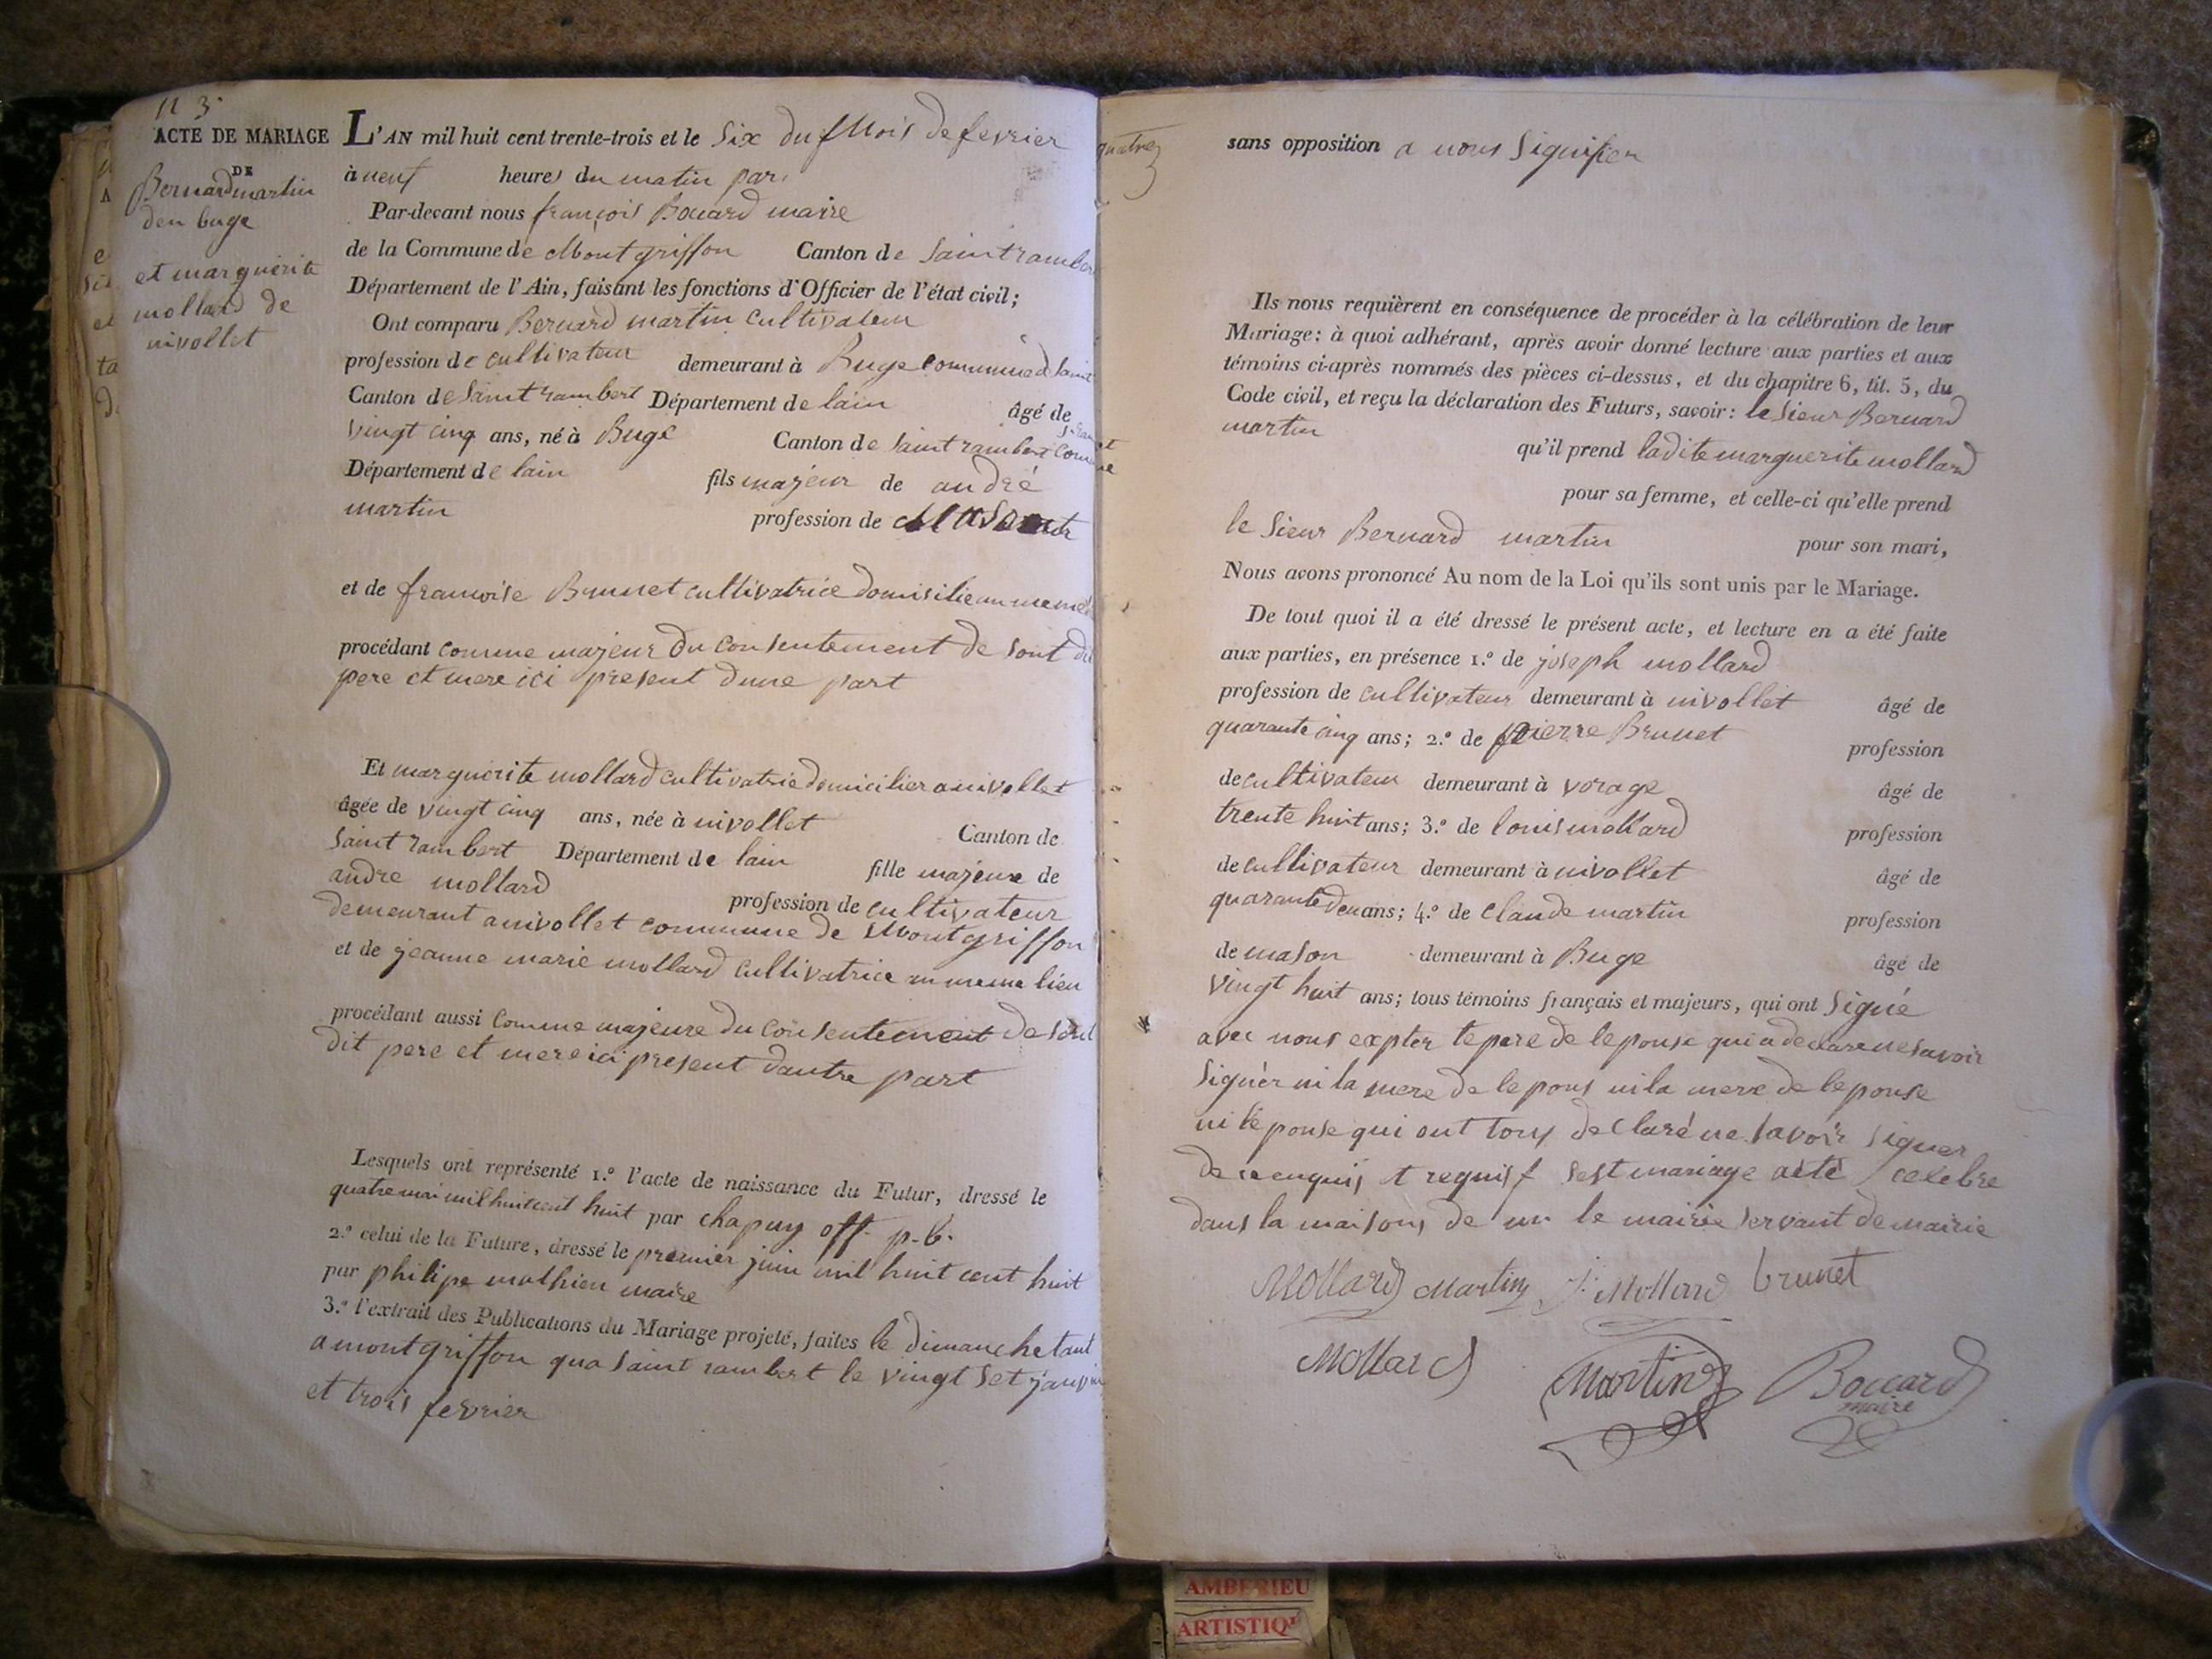 N 3
ACTE DE MARIAGE
DE
Bernard martin
den buge
et marguerite
mollard de
nivollet
L'AN mil huit cent trente-trois et le six du Mois de fevrier
à neuf heures du matin par
Par-devant nous françois Boccard maire
de la Commune de Montgriffon Canton de Saint rambert
Département de l'Ain, faisant les fonctions d'Officier de l'état civil;
Ont comparu Bernard martin cultivateur
profession de cultivateur demeurant à Buge commune d saint
Canton de Saint rambert Département de lain âgé de
vingt cinq ans, né à Buge Canton de saint rambert
Département de lain fils majeur de andré
martin profession de
et de francoise Brunet cultivatrice domisilie au meme
procédant comme majeur du consentement de sont dit
pere et mere ici present dune part
Et marguerite mollard cultivatrie domicilier a nivollet
âgée de vingt cinq ans, née à nivollet Canton de
saint rambert Département de lain fille majeure de
andre mollard profession de cultivateur
demeurant a nivollet commune de Montgriffon
et de jeanne marie mollard cultivatrice au meme lieu
procédant aussi comme majeure du consentement de sont
dit pere et mere ici present dautre part
Lesquels ont représenté 1.º l'acte de naissance du Futur, dressé le
quatre mai mil huit cent huit par chapuy off. p.b.
2.º celui de la Future, dressé le premier juin mil huit cent huit
par philipe mathieu maire
3.º l'extrait des Publications du Mariage projeté, faites le dimanche tant
a montgriffon qua saint rambert le vingt set janvier
et trois fevrier
sans opposition a nous signifier
Ils nous requièrent en conséquence de procéder à la célébration de leur
Mariage: à quoi adhérant, après avoir donné lecture aux parties et aux
témoins ci-après nommés des pièces ci-dessus, et du chapitre 6, tit. 5, du
Code civil, et reçu la déclaration des Futurs, savoir: le sieur Bernard
martin
qu'il prend ladite marguerite mollard
pour sa femme, et celle-ci qu'elle prend
le sieur Bernard martin pour son mari,
Nous avons prononcé Au nom de la Loi qu'ils sont unis par le Mariage.
De tout quoi il a été dressé le présent acte, et lecture en a été faite
aux parties, en présence 1.º de joseph mollard
profession de cultivateur demeurant à nivollet âgé de
quarante cinq ans; 2.º de pierre Brunet profession
de cultivateur demeurant à vorage âgé de
trente huit ans; 3.º de louis mollard profession
de cultivateur demeurant à nivollet âgé de
quarante deu ans; 4.º de claude martin profession
de mason demeurant à Buge âgé de
vingt huit ans; tous témoins français et majeurs, qui ont signé
avec nous expter le pere de lepouse qui a declare ne savoir
signer ni la mere de lepous ni la mere de lepouse
ni lepouse qui ont tous declaré ne savoir signer
de ce enquis t requis sest mariage aété celebre
dans la maisons de un le mairie servant de mairie
Mollard Martin J. Mollard brunet
Mollard Martin Boccard
maire
AMBERIEU
ARTISTIQ